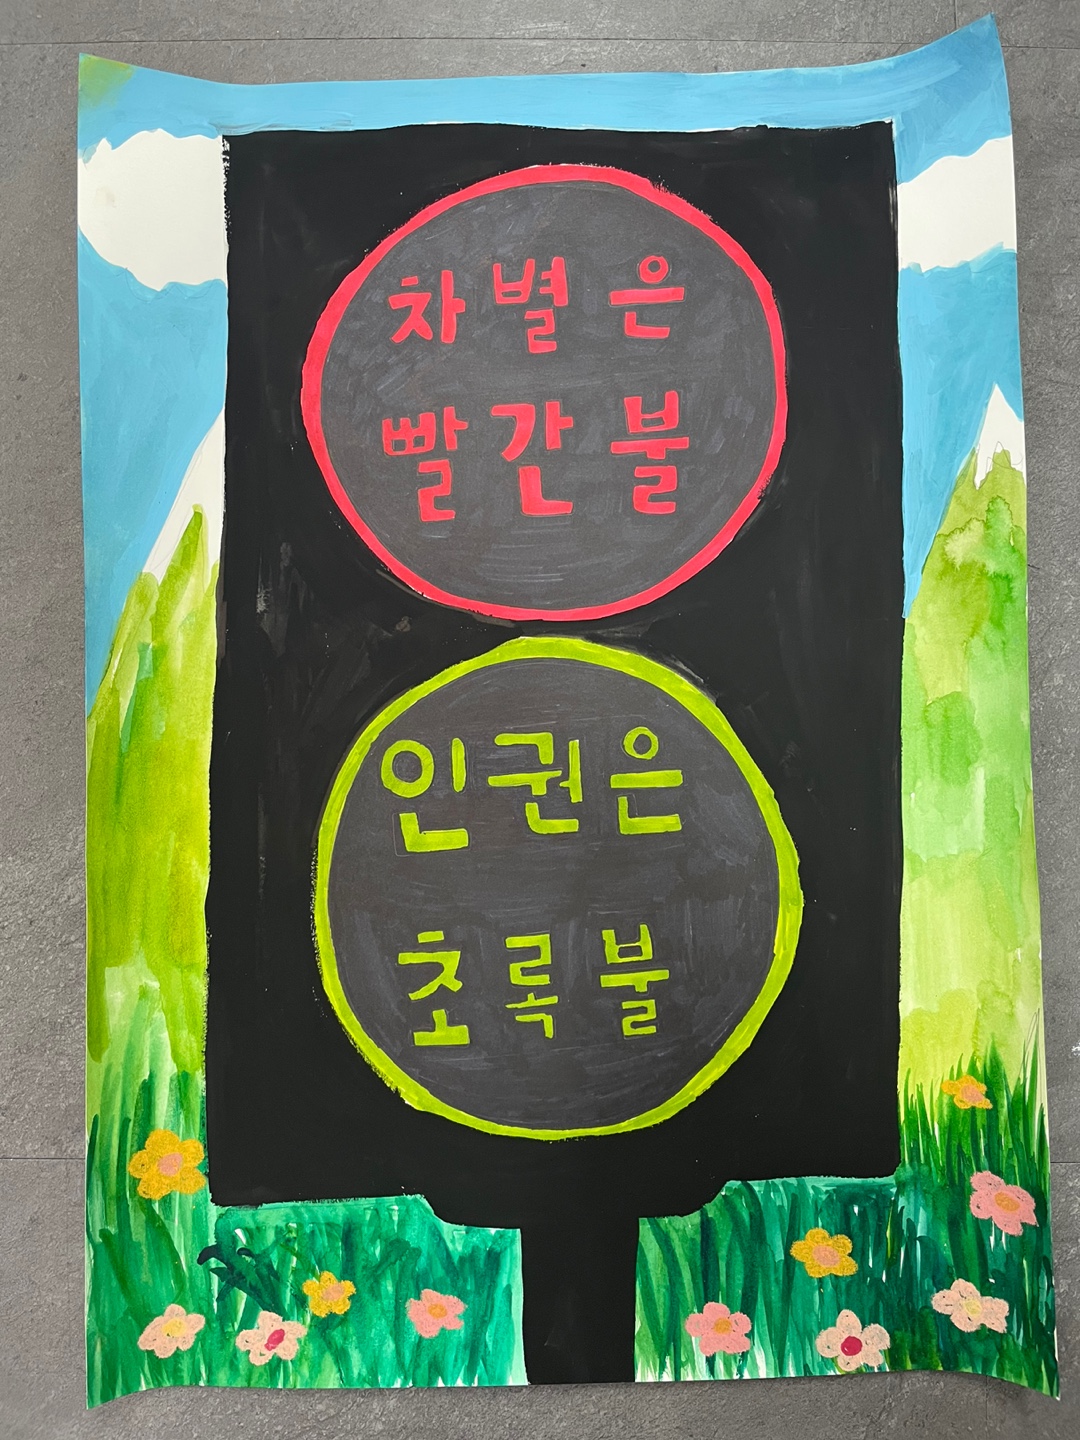 차별은
빨간불
인권은
초록불